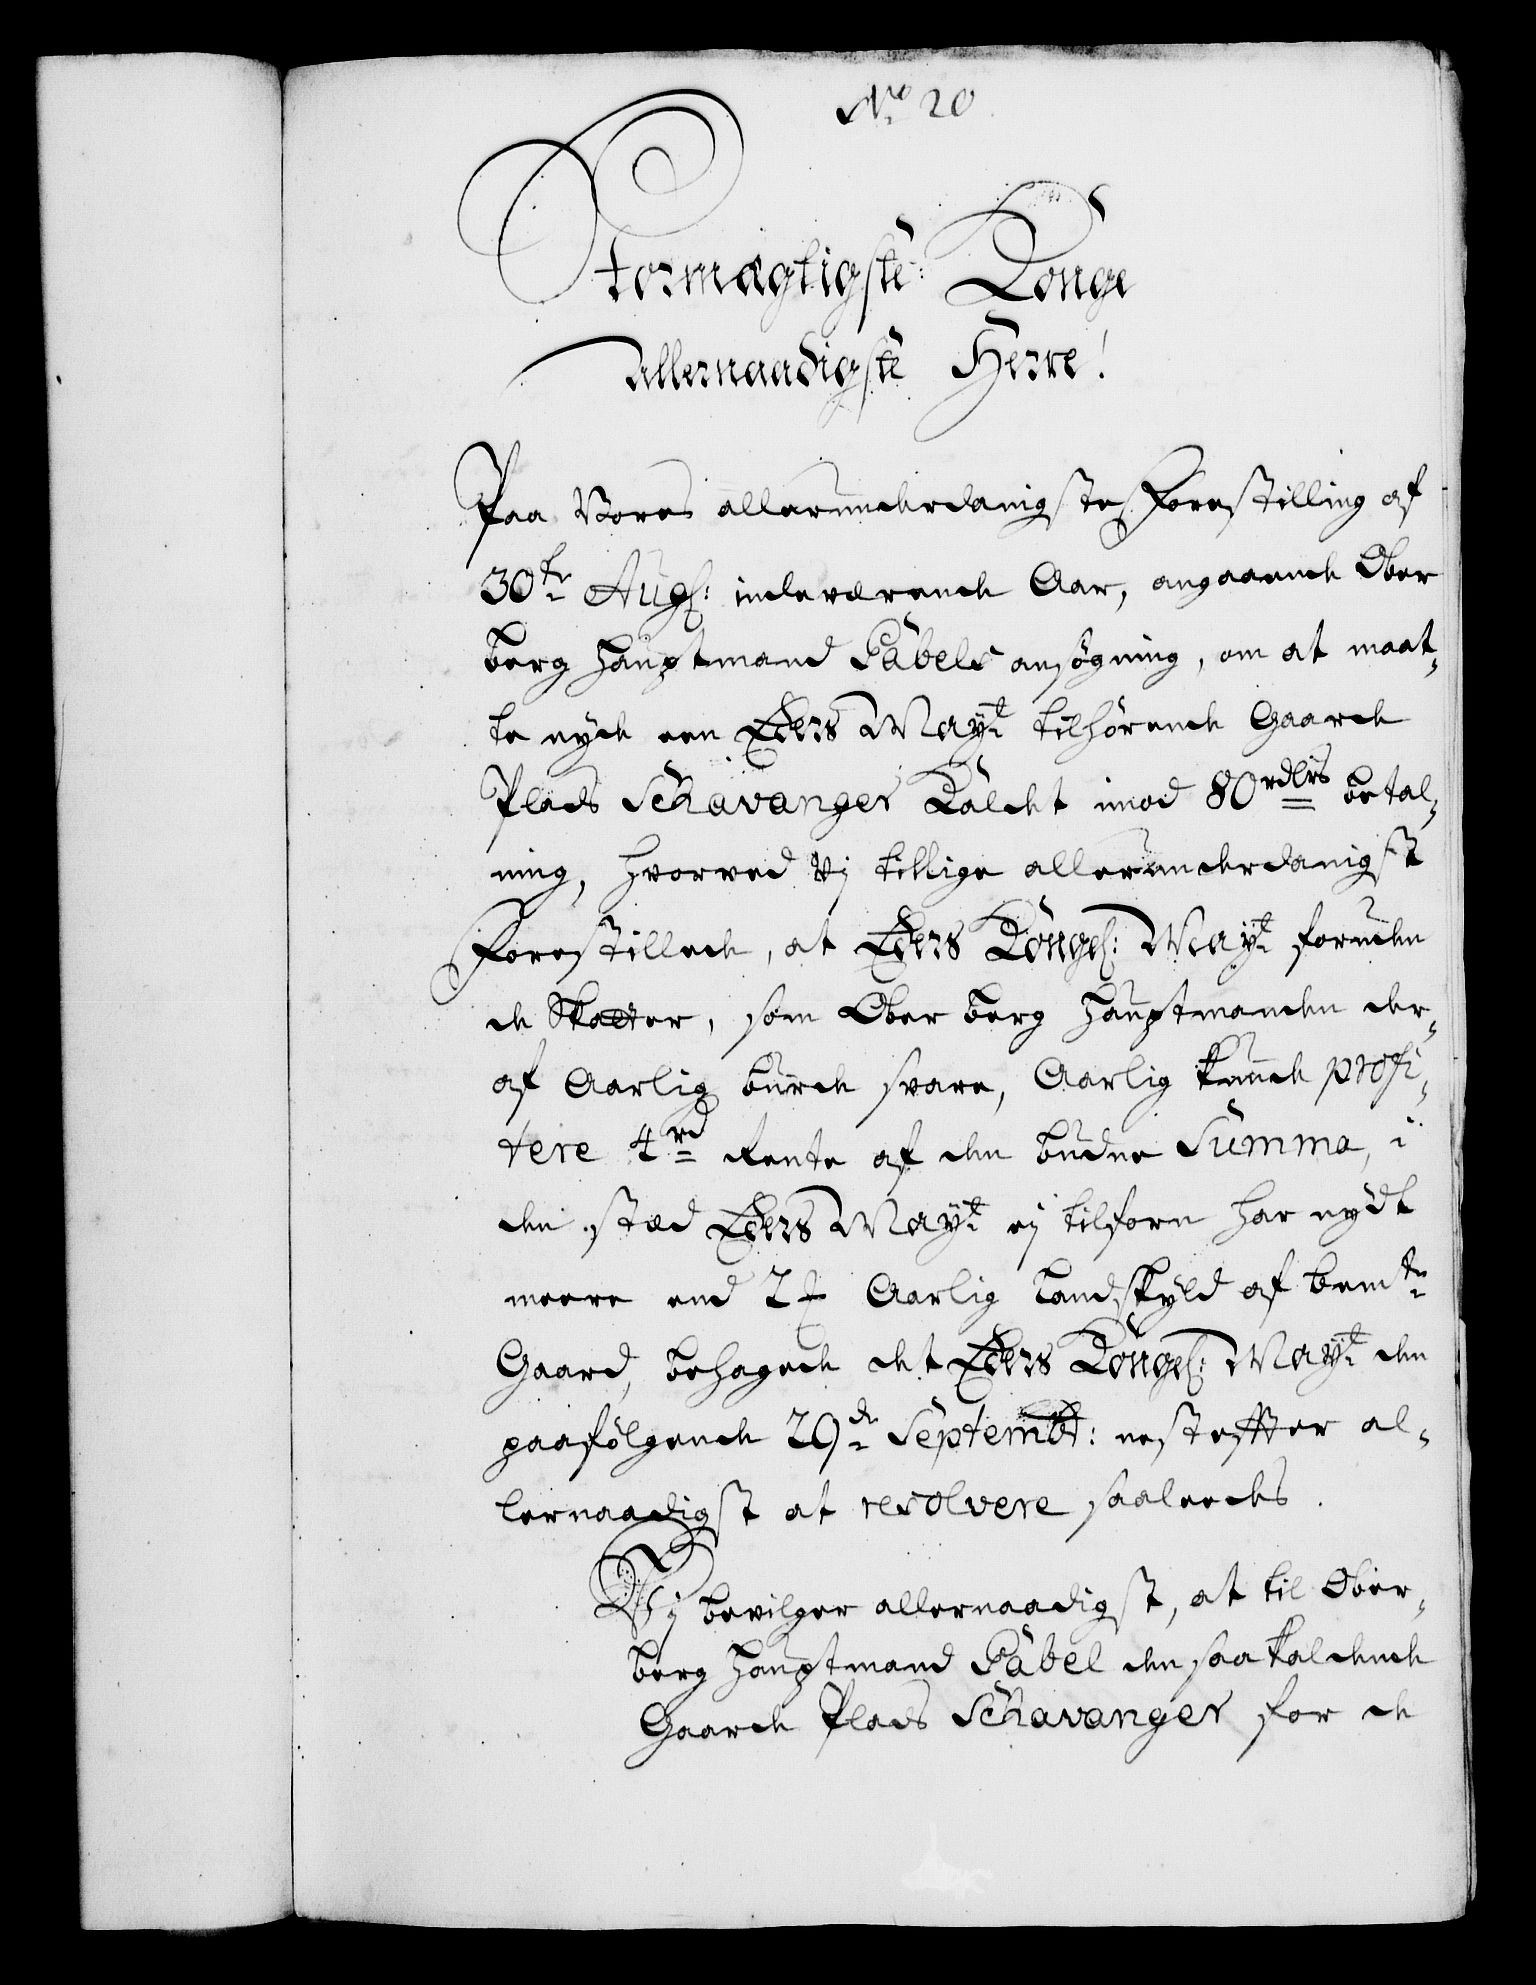 No 20
Stormägtigste Konge
Allernaadigste Herre!
Paa Vores allerunderdanigste Forestilling af
30te Augs: indeværende Aar, angaaende Ober
berg Hauptmand Påbels ansøgning, om at maat-
te nyde een Eders Mayt tilhørende Gaarde
Plads Schavanger Kaldet imod 80 rdlrs betal-
ning, hvorved Vj tillige allerunderdanigst
Forestillede, at Eders Kongel: Mayt foruden
de Skatter, som Ober berg Hauptmanden der-
af Aarlig burde svare, Aarlig kunde profi-
tere 4 rd Rente af den budne Summa, i
den stæd Eders Mayt ej tilforn har nydt
meere end 2 Aarlig Landskyld af bemte
Gaard, behagede det Eders Kongel: Mayt den
paafølgende 29de Septembr: nest effter al-
lernaadigst at resolvere saaledes.
Vj bevilger allernaadigst, at til Ober-
berg Hauptmand Påbel den saa kaldende
Gaarde Plads Schavanger for de